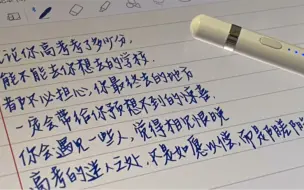 论你高考考了多少分,
能不能去你想去的学校,
都不必担心,你最终去的地方
一定会带给你预想不到的惊喜.
你会遇见一些人,觉得相见恨晚
高考的迷人之处,不是如愿以偿,而是